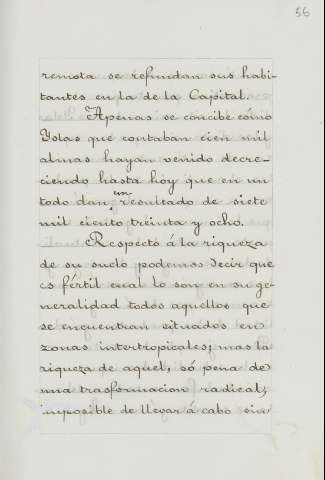 56
remota se refundan sus habi-
tantes en la de la Capital.
Apenas se concibe cómo
Yslas que contaban cien mil
almas hayan venido decre-
ciendo hasta hoy que en un
todo dan un resultado de siete
mil ciento treinta y ocho.
Respecto á la riqueza
de su suelo podemos decir que
es fértil cual lo son en su ge-
neralidad todos aquellos que
se encuentran situados en
zonas intertropicales; mas la
riqueza de aquel, só pena de
una trasformacion radical,
imposible de llevar á cabo sin